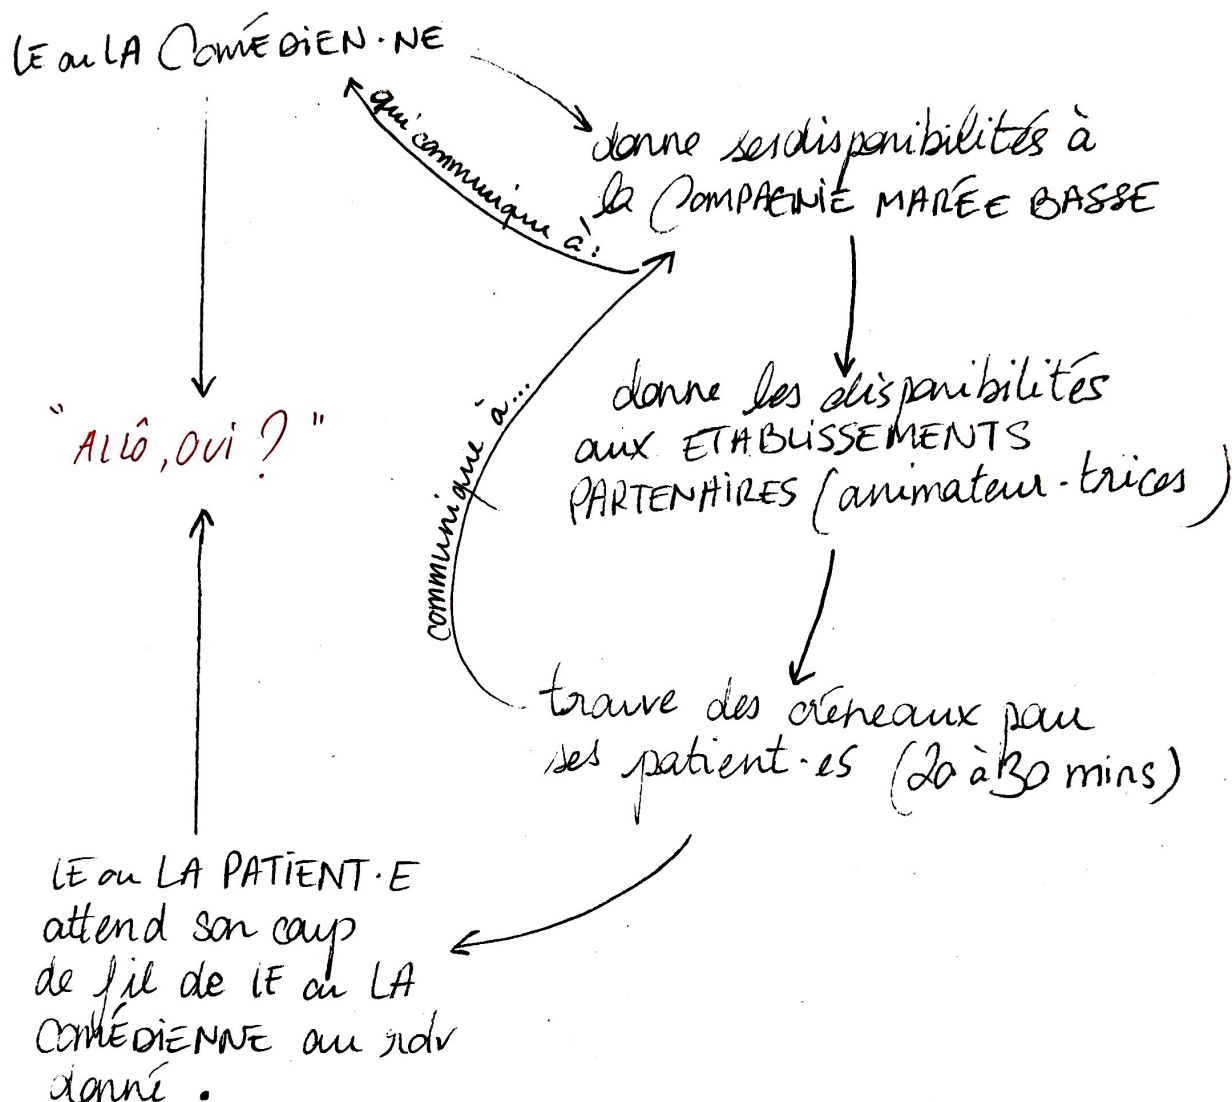 LE ou LA COMÉDIEN·NE
qui communique à :
donne ses disponibilités à
la COMPAGNIE MARÉE BASSE
donne les disponibilités
aux ETABLISSEMENTS
PARTENAIRES (animateur-trices)
"ALLÔ, OUI ?"
communique à...
trouve des créneaux pour
ses patient·es (20 à 30 mins)
LE ou LA PATIENT·E
attend son coup
de fil de LE ou LA
COMÉDIENNE au rdv
donné.